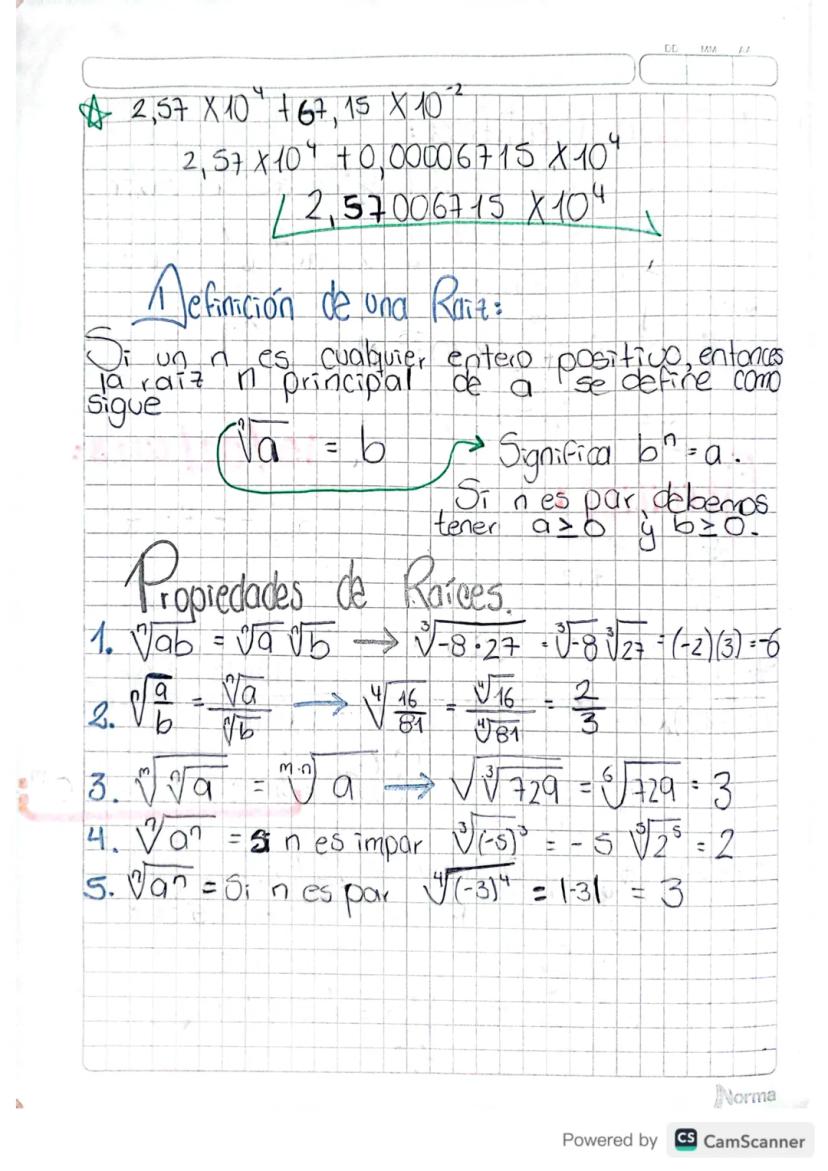 DD MM AA
☆ 2,57 X 10⁴ + 67,15 X 10⁻²
2,57 X 10⁴ + 0,00006715 X 10⁴
2,57006715 X 10⁴
Definición de una Raiz:
Si un n es cualquier entero positivo, entonces
la raiz n principal de a se define como
sigue
ⁿ√a = b → Significa bⁿ = a.
Si n es par, debemos
tener a ≥ 0 y b ≥ 0.
Propiedades de Raíces.
1. ⁿ√ab = ⁿ√a ⁿ√b → ³√-8·27 = ³√-8 ³√27 = (-2)(3) = -6
2. ⁿ√a/b = ⁿ√a/ⁿ√b → ⁴√16/81 = ⁴√16/⁴√81 = 2/3
3. ᵐ√ⁿ√a = ᵐ·ⁿ√a → √³√729 = ⁶√729 = 3
4. ⁿ√aⁿ = Si n es impar ³√(-5)³ = -5 ⁵√2⁵ = 2
5. ⁿ√aⁿ = Si n es par ⁴√(-3)⁴ = |-3| = 3
Norma
Powered by CS CamScanner